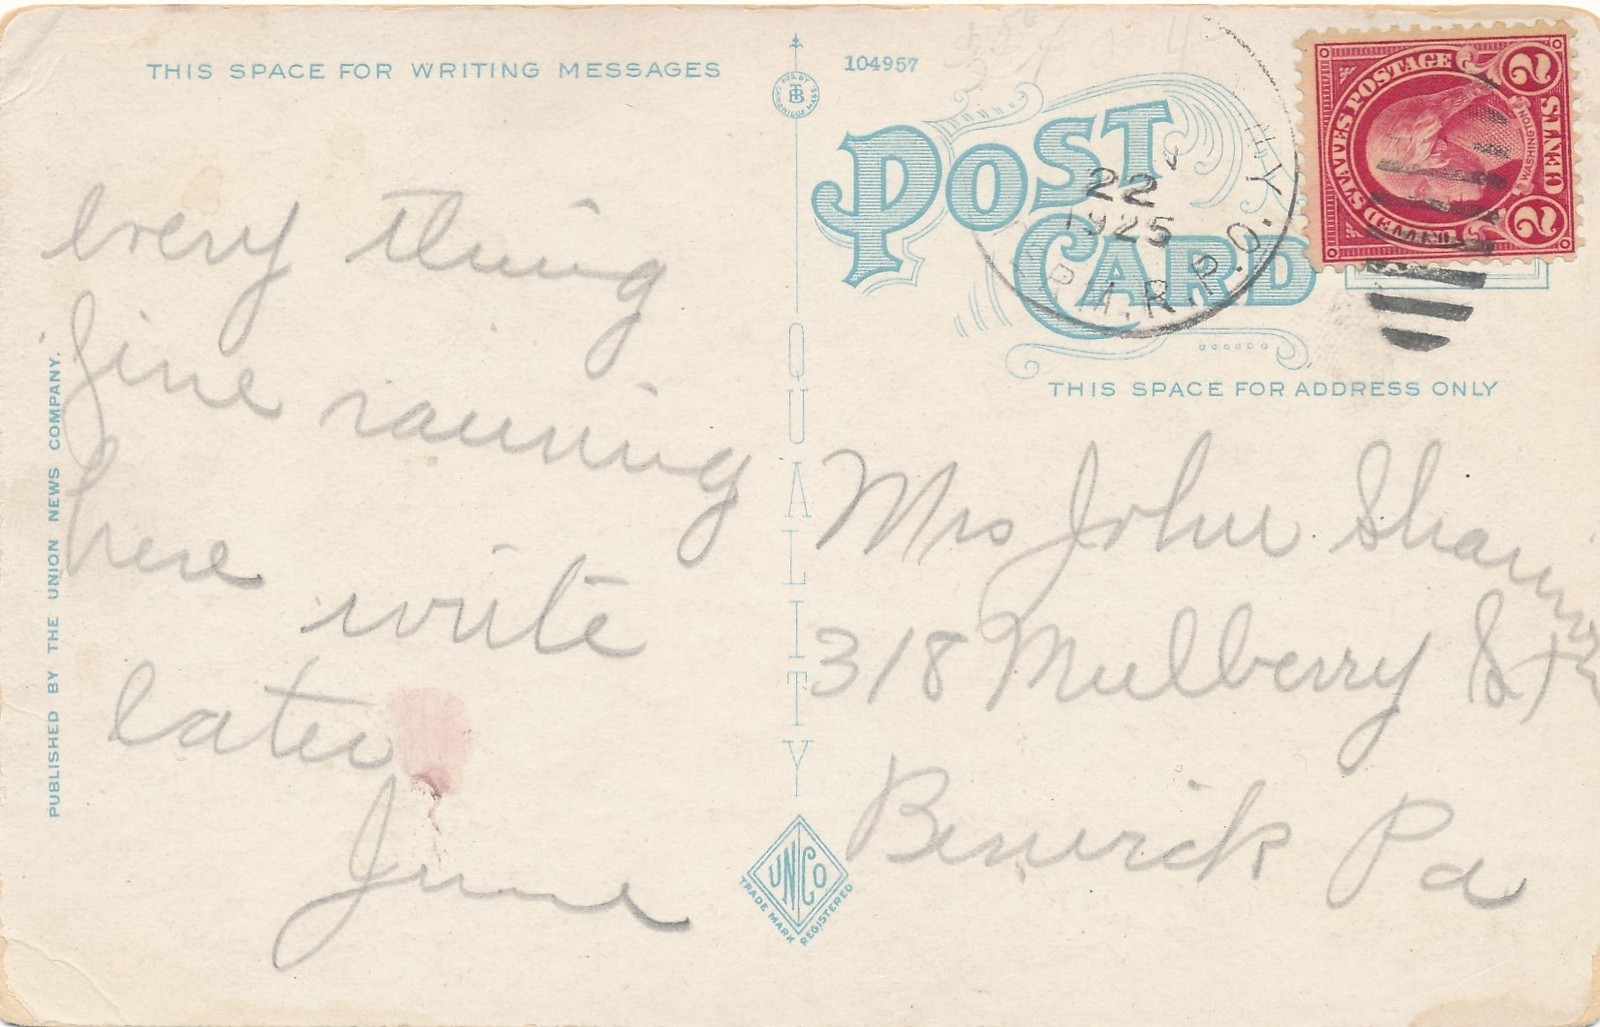 THIS SPACE FOR WRITING MESSAGES
every thing
fine raining
here write
later
June
PUBLISHED BY THE UNION NEWS COMPANY.
104957
POST CARD
QUALITY
UNCO
TRADE MARK REGISTERED
22
1925
R.P.O.
UNITED STATES POSTAGE
WASHINGTON
2 CENTS 2
THIS SPACE FOR ADDRESS ONLY
Mrs John
318 Mulberry St
Berwick Pa